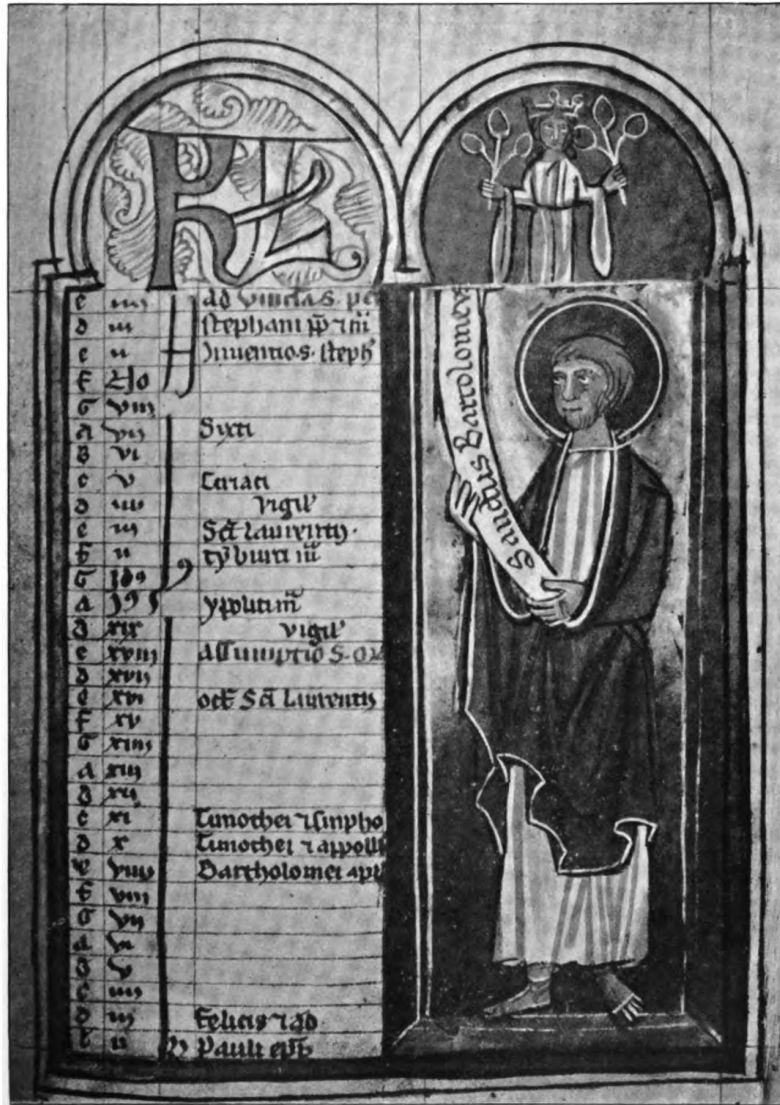 KL
c iiii ad vincla s. pe
d iii stephani pp̄ ⁊ m̄
e ii Inventio s. steph'
f No
G viii
a vii Sixti
B vi
c v Ciriaci
d iiii vigil'
e iii Sc̄i Laurentii.
f ii tyburti m̄
G Idꝰ
a 19 ypoliti m̄
b xix vigil'
c xviii assumptio S.
d xvii
e xvi oct̄ Sc̄i Laurentii
f xv
G xiiii
a xiii
b xii
c xi Timothei ⁊ simpho
d x Timothei ⁊ appolli
e viiii Bartholomei ap
f viii
G vii
a vi
b v
c iiii
d iii Felicis ⁊ ad
e ii Pauli ep̄i
Sanctus Bartolomevs